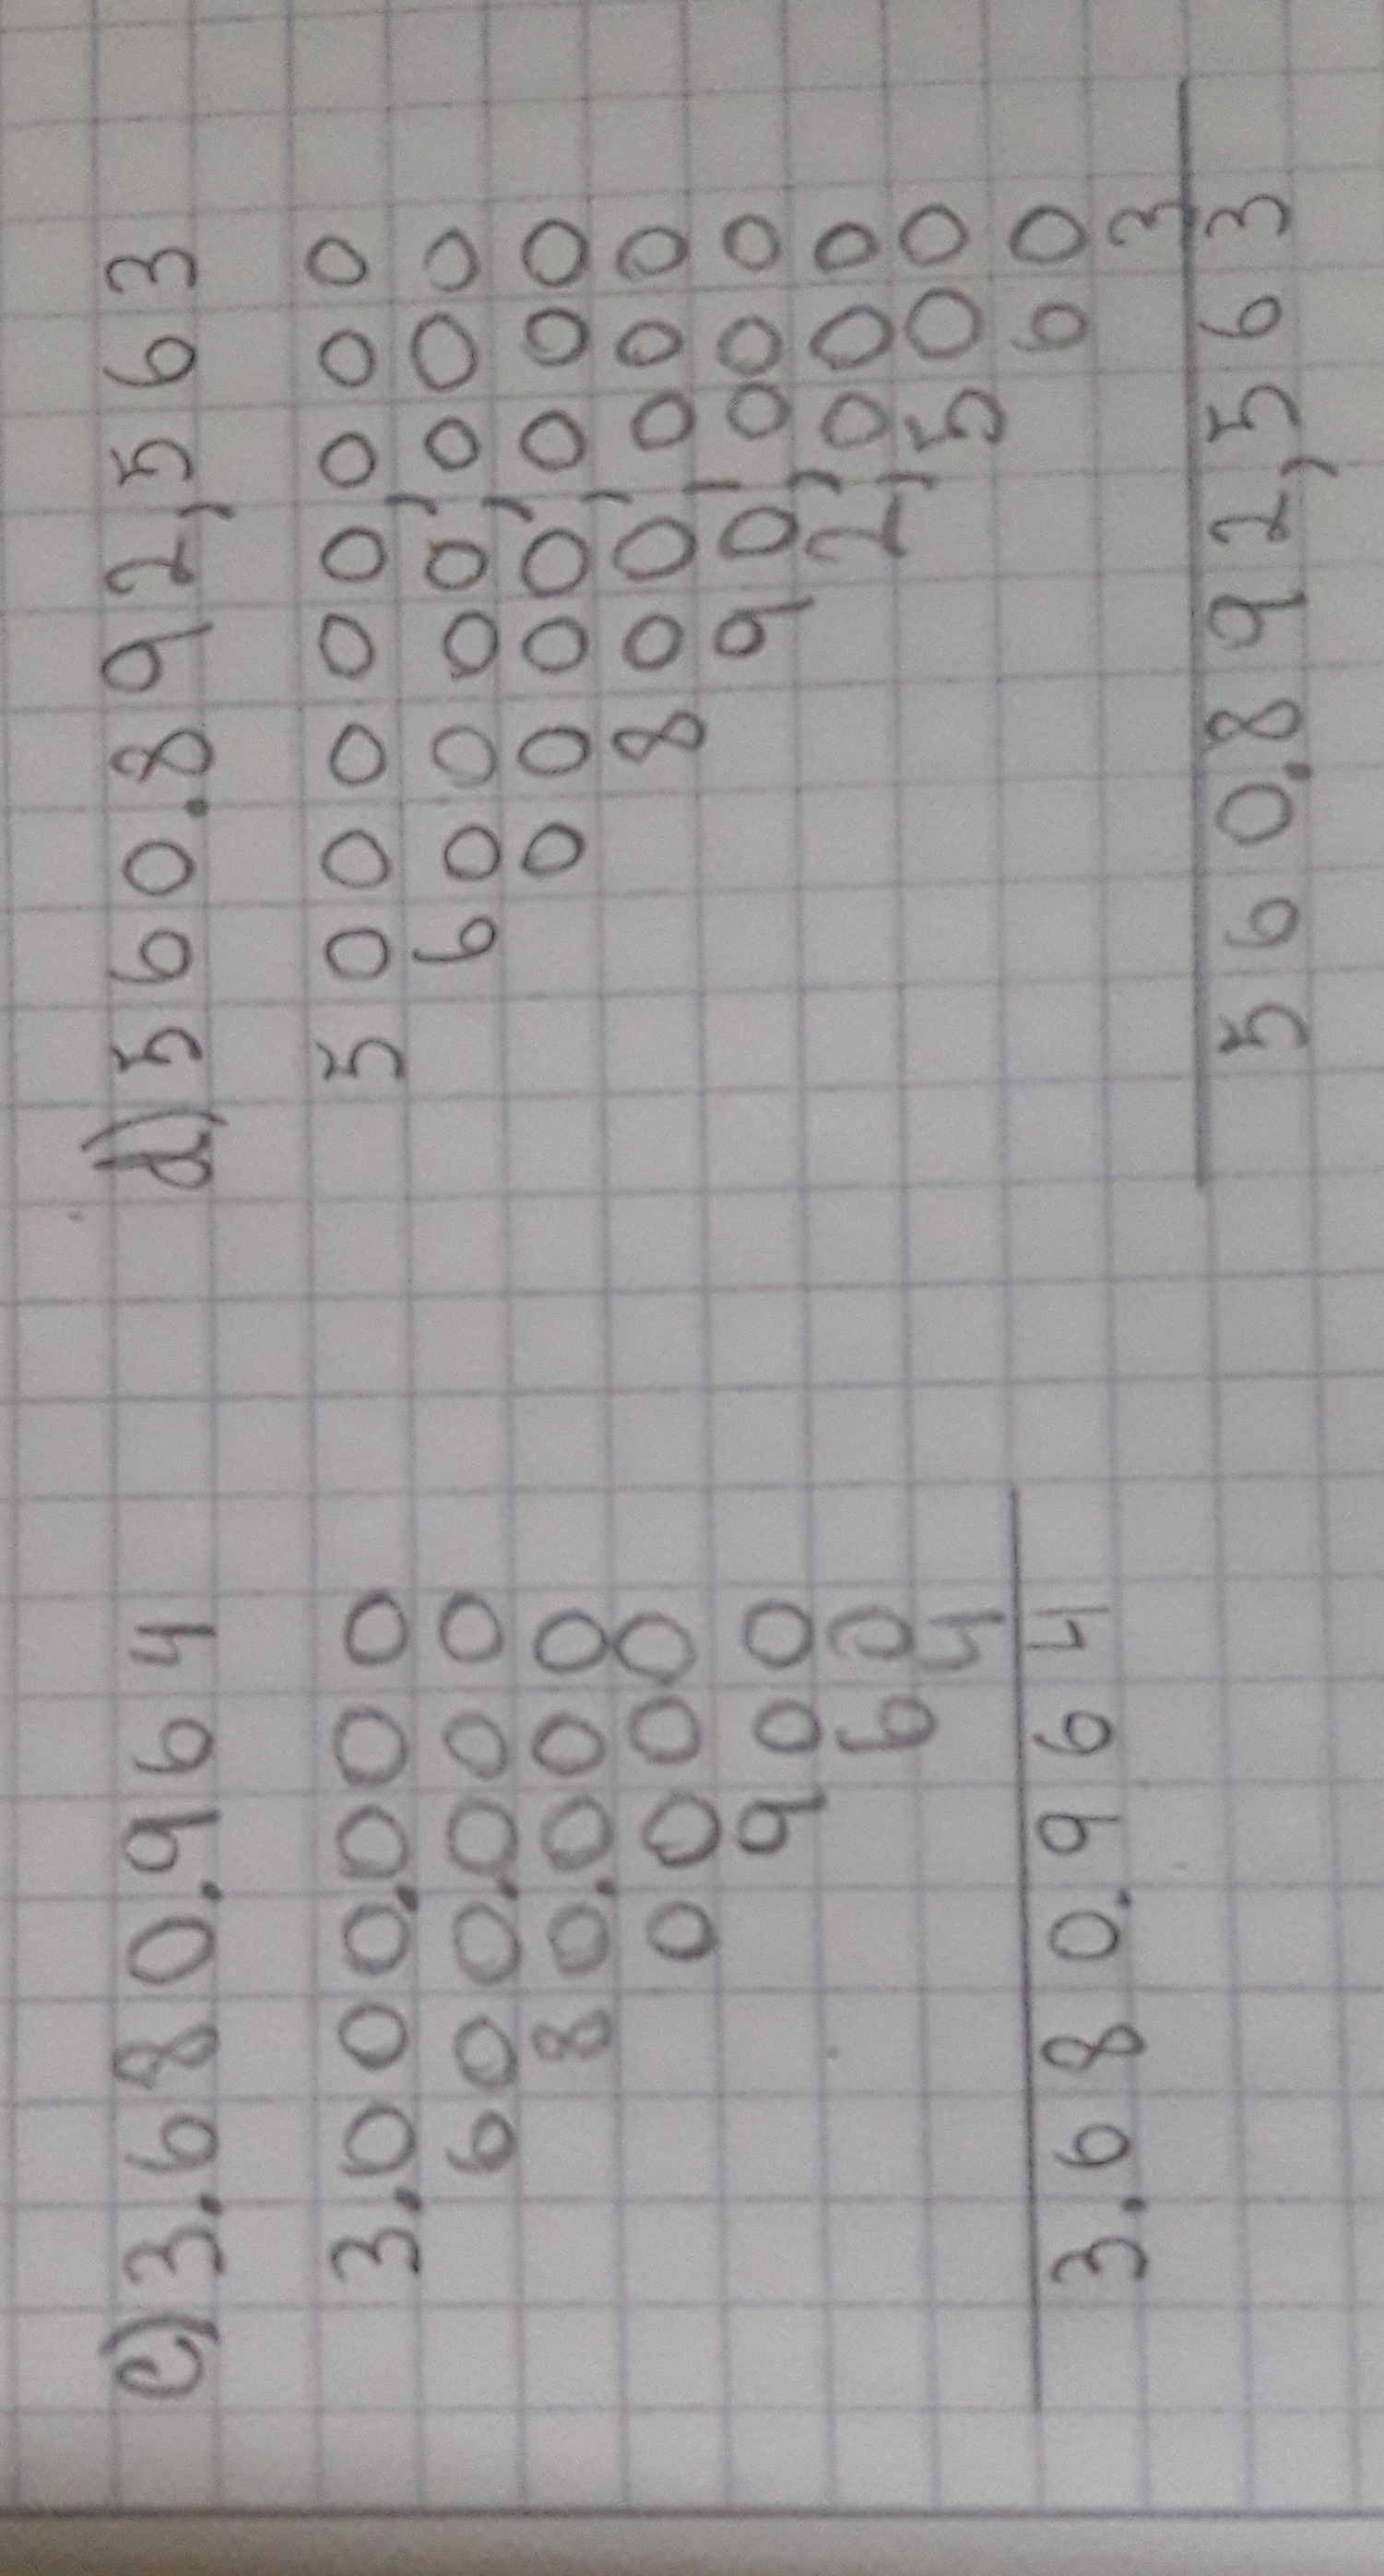 c) 3.680.964
3.000.000
600.000
80.000
0000
900
60
4
3.680.964
d) 560.892,563
500000,000
60000,000
0000,000
800,000
90,000
2,000
500
60
3
560.892,563